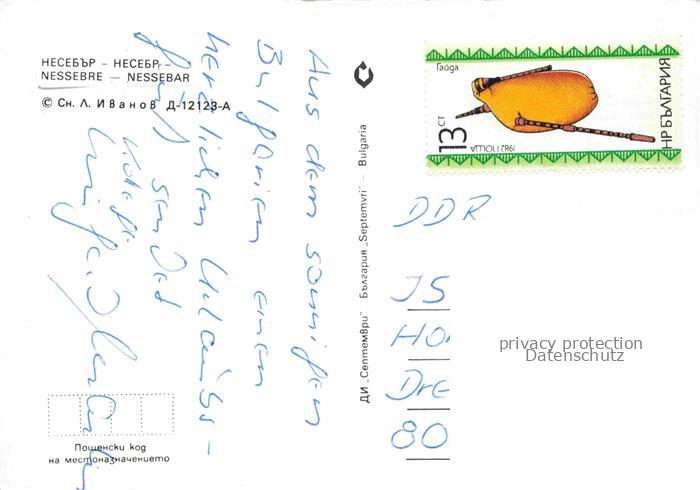 НЕСЕБЪР – НЕСЕБР –
NESSEBRE – NESSEBAR
© Сн. Л. Иванов Д-12123-А
Aus dem sonnigen
Bulgarien einen
herzlichen Urlaubs-
gruß
senden
Пощенски код
на местоназначението
ДИ „Септември" България „Septemvri" – Bulgaria
Гайда
13 СТ
1982 ПОЩА
НР БЪЛГАРИЯ
DDR
Dre
80
privacy protection
Datenschutz